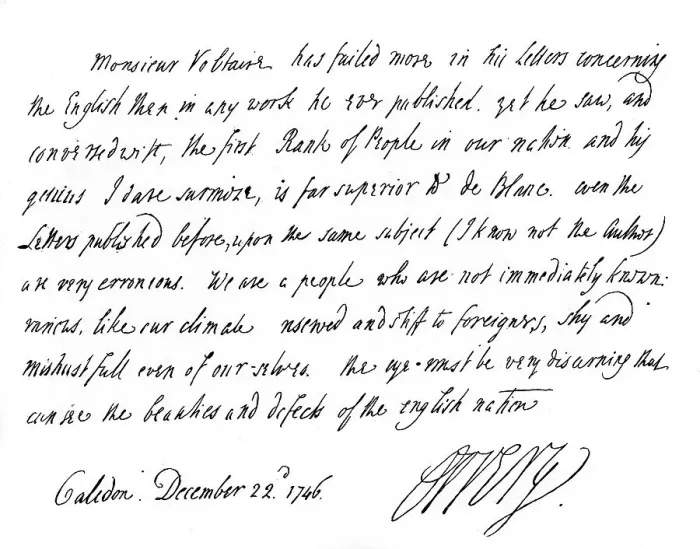 Monsieur Voltaire has failed more in his Letters concerning
the English than in any work he ever published. yet he saw, and
conversed with, the first Rank of People in our nation. and his
genius I dare surmize, is far superior to de Blanc. even the
Letters published before, upon the same subject (I know not the Author)
are very erroneous. We are a people who are not immediately known:
various, like our climate reserved and stiff to foreigners, shy and
mistrustfull even of our-selves. the eye must be very discerning that
can see the beauties and defects of the english nation
Caledon. December 22.d 1746.
Orrery.